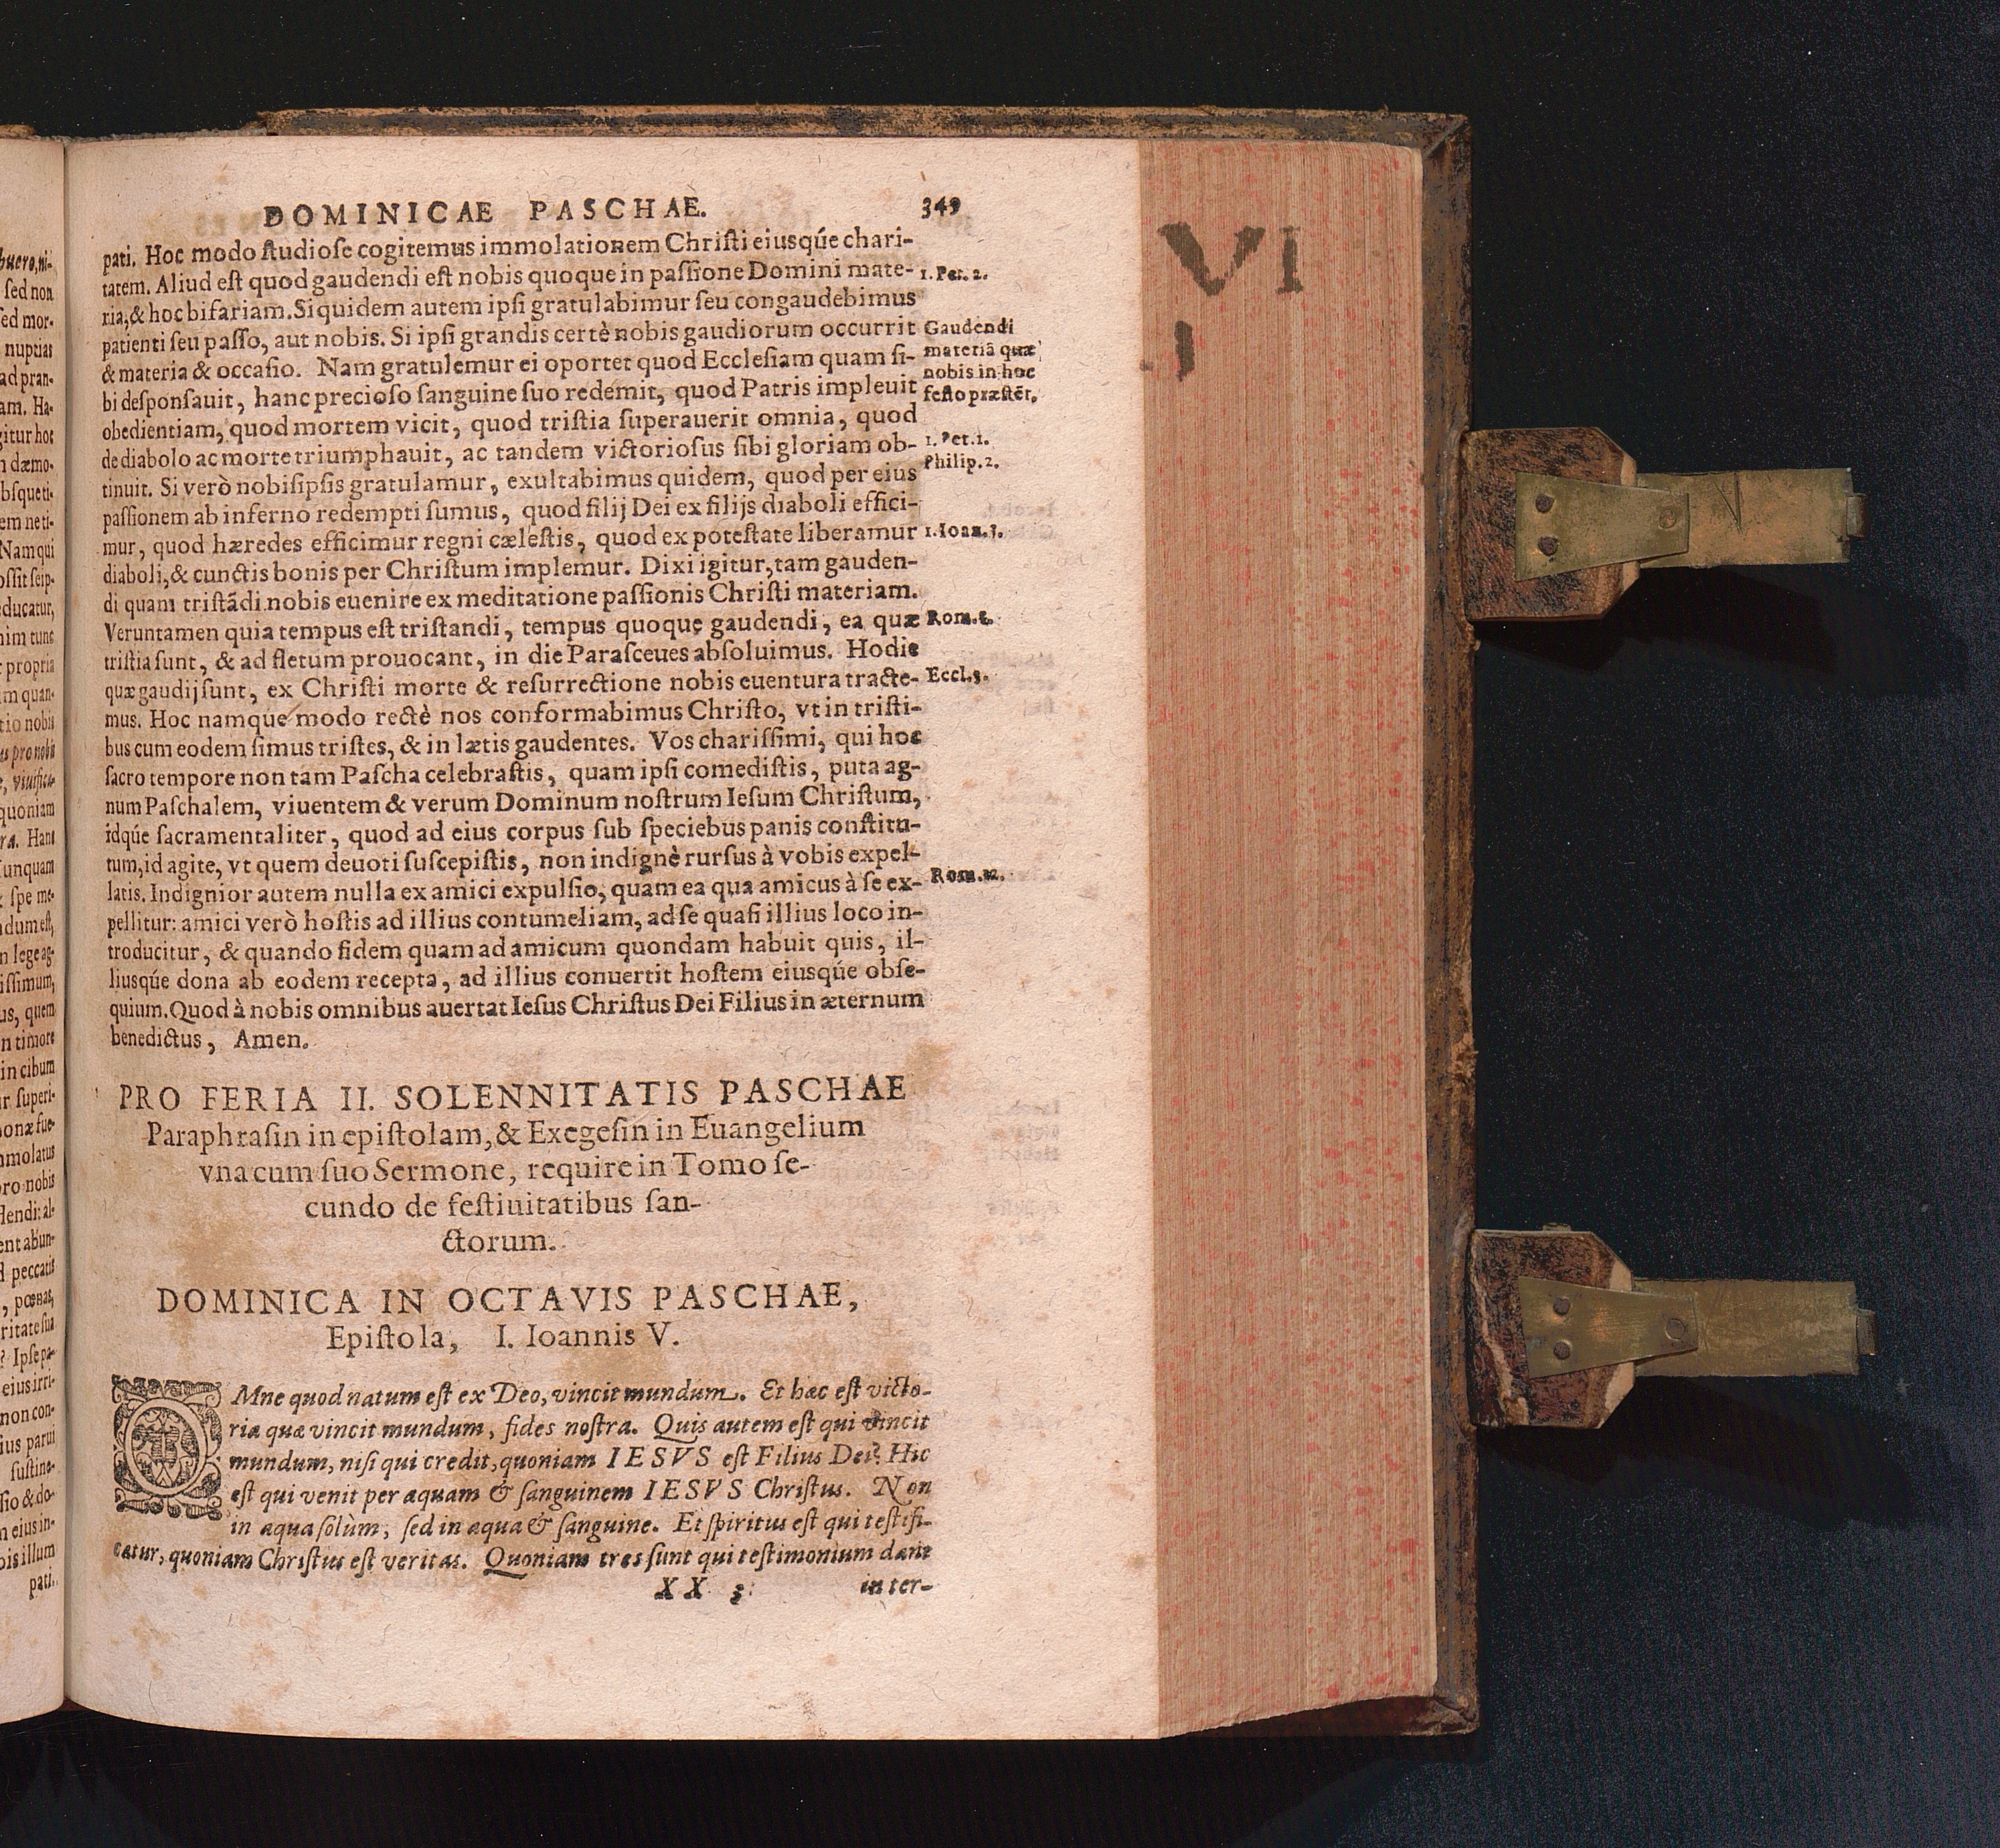 DOMINICAE PASCHAE. 349
pati. Hoc modo ſtudioſe cogitemus immolationem Chriſti eiusq́ue chari-
tatem. Aliud eſt quod gaudendi eſt nobis quoque in paſſione Domini mate-
ria, & hoc bifariam. Siquidem autem ipſi gratulabimur ſeu congaudebimus
patienti ſeu paſſo, aut nobis. Si ipſi grandis certè nobis gaudiorum occurrit
& materia & occaſio. Nam gratulemur ei oportet quod Eccleſiam quam ſi-
bi deſponſauit, hanc precioſo ſanguine ſuo redemit, quod Patris impleuit
obedientiam, quod mortem vicit, quod triſtia ſuperauerit omnia, quod
de diabolo ac morte triumphauit, ac tandem victorioſus ſibi gloriam ob-
tinuit. Si verò nobiſipſis gratulamur, exultabimus quidem, quod per eius
paſſionem ab inferno redempti ſumus, quod filij Dei ex filijs diaboli effici-
mur, quod hæredes efficimur regni cæleſtis, quod ex poteſtate liberamur
diaboli, & cunctis bonis per Chriſtum implemur. Dixi igitur, tam gauden-
di quam triſtãdi nobis euenire ex meditatione paſſionis Chriſti materiam.
Veruntamen quia tempus eſt triſtandi, tempus quoque gaudendi, ea quæ
triſtia ſunt, & ad fletum prouocant, in die Paraſceues abſoluimus. Hodie
quæ gaudij ſunt, ex Chriſti morte & reſurrectione nobis euentura tracte-
mus. Hoc namque modo rectè nos conformabimus Chriſto, vt in triſti-
bus cum eodem ſimus triſtes, & in lætis gaudentes. Vos chariſſimi, qui hoc
ſacro tempore non tam Paſcha celebraſtis, quam ipſi comediſtis, puta ag-
num Paſchalem, viuentem & verum Dominum noſtrum Ieſum Chriſtum,
idq́ue ſacramentaliter, quod ad eius corpus ſub ſpeciebus panis conſtitu-
tum, id agite, vt quem deuoti ſuſcepiſtis, non indignè rurſus à vobis expel-
latis. Indignior autem nulla ex amici expulſio, quam ea qua amicus à ſe ex-
pellitur: amici verò hoſtis ad illius contumeliam, ad ſe quaſi illius loco in-
troducitur, & quando fidem quam ad amicum quondam habuit quis, il-
liusq́ue dona ab eodem recepta, ad illius conuertit hoſtem eiusq́ue obſe-
quium. Quod à nobis omnibus auertat Ieſus Chriſtus Dei Filius in æternum
benedictus, Amen.
1. Pet. 2.
Gaudendi
materiã quæ
nobis in hoc
feſto præſtēt.
1. Pet. 1.
Philip. 2.
1. Ioan. 3.
Rom.
Eccl. 3.
Rom. 12.
PRO FERIA II. SOLENNITATIS PASCHAE
Paraphraſin in epiſtolam, & Exegeſin in Euangelium
vna cum ſuo Sermone, require in Tomo ſe-
cundo de feſtiuitatibus ſan-
ctorum.
DOMINICA IN OCTAVIS PASCHAE,
Epiſtola, I. Ioannis V.
OMne quod natum eſt ex Deo, vincit mundum. Et hæc eſt victo-
ria quæ vincit mundum, fides noſtra. Quis autem eſt qui vincit
mundum, niſi qui credit, quoniam IESVS eſt Filius Dei? Hic
eſt qui venit per aquam & ſanguinem IESVS Chriſtus. Non
in aqua ſolùm, ſed in aqua & ſanguine. Et ſpiritus eſt qui teſtifi-
catur, quoniam Chriſtus eſt veritas. Quoniam tres ſunt qui teſtimonium dant
XX 3 in ter-
VI
buero, ni-
ſed non
ſed mor-
nuptias
ad pran-
am. Ha-
gitur hoc
dæmo-
bſque ti-
em ne ti-
Nam qui
oſſit ſeip-
educatur,
nim tunc
propria
m quan-
tio nobis
pro nobis
, viuifica-
quoniam
ra. Hanc
unquam
ſpe me-
dum eſt,
n lege ag-
iſſimum,
us, quem
n timore
in cibum
r ſuperi-
onæ fue-
mmolatus
pro nobis
flendi: al-
ent abun-
d peccatis
, pœnas,
ritate ſua
? Ipſe pa-
eius irri-
non con-
ius parui
ſuſtine-
ſio & do-
m eius in-
bis illum
pati.